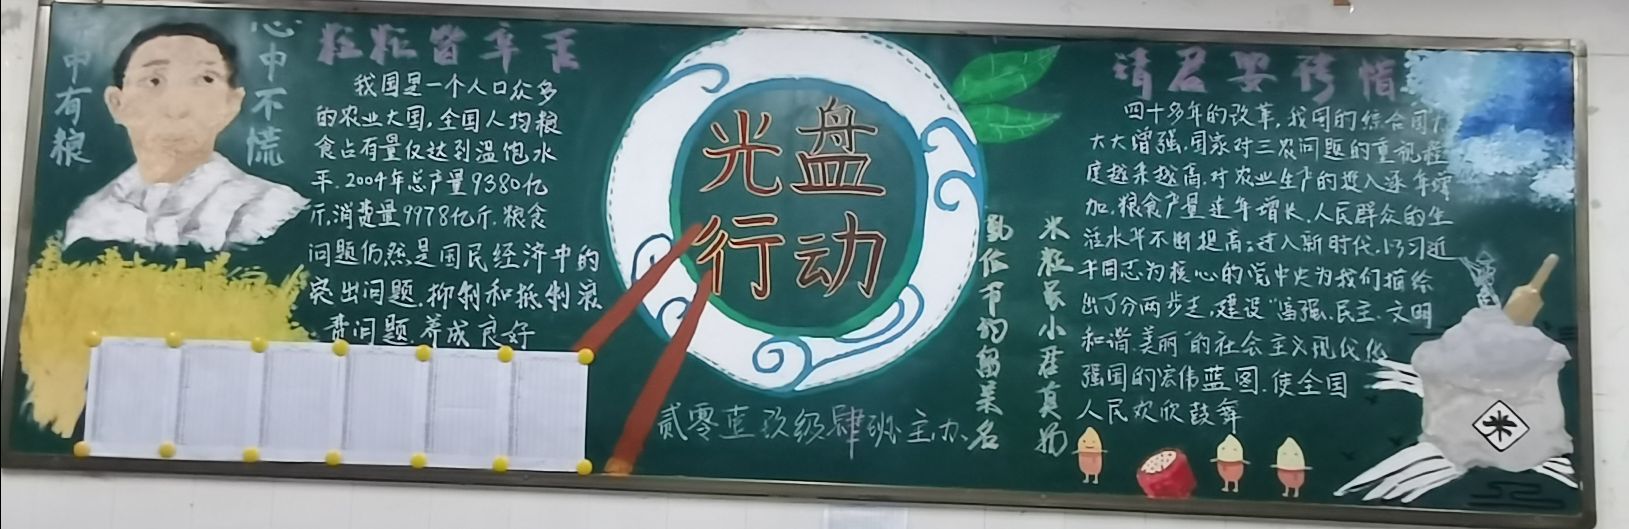 手中有粮
心中不慌
粒粒皆辛苦
我国是一个人口众多
的农业大国,全国人均粮
食占有量仅达到温饱水
平.2004年总产量9380亿
斤,消费量9978亿斤.粮食
问题仍然是国民经济中的
突出问题.抑制和抵制浪
费问题.养成良好
光盘
行动
贰零壹玖级肆班主办
勤俭节约留美名
米粒虽小君莫扔
请君要珍惜
四十多年的改革,我国的综合国力
大大增强,国家对三农问题的重视程
度越来越高.对农业生产的投入逐年增
加.粮食产量连年增长.人民群众的生
活水平不断提高;进入新时代.以习近
平同志为核心的党中央为我们描绘
出了分两步走,建设"富强.民主.文明
和谐.美丽"的社会主义现代化
强国的宏伟蓝图.使全国
人民欢欣鼓舞
米